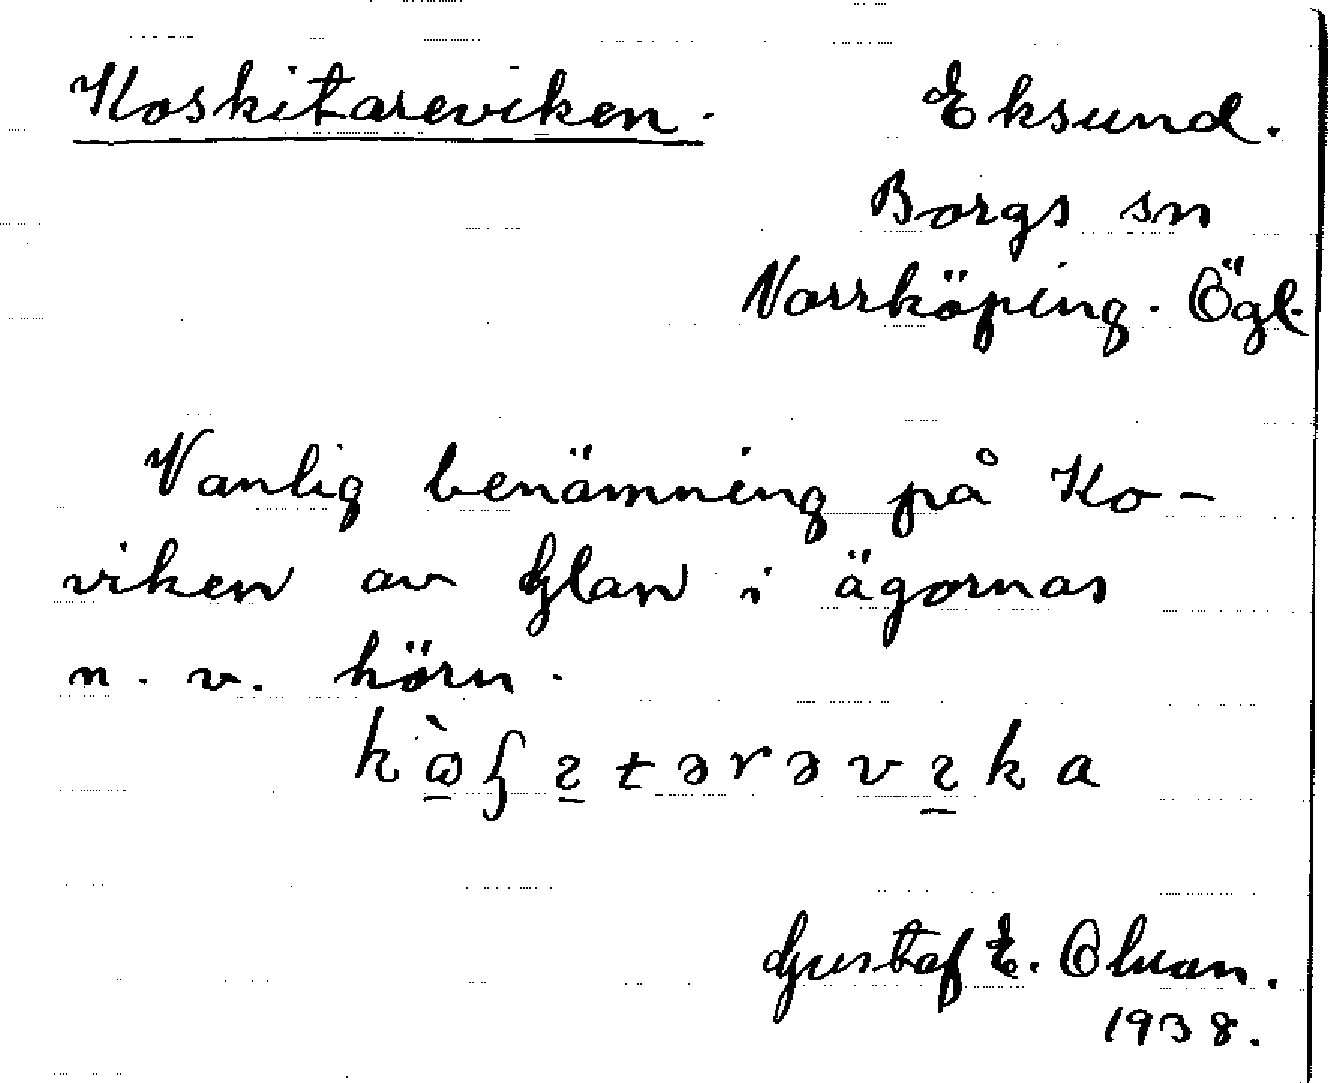 Koskitareviken. Eksund.
Borgs sn
Norrköping. Ögl.
Vanlig benämning på Ko-
viken av Glan i ägornas
n. v. hörn.
Gustaf E. Olsson.
1938.